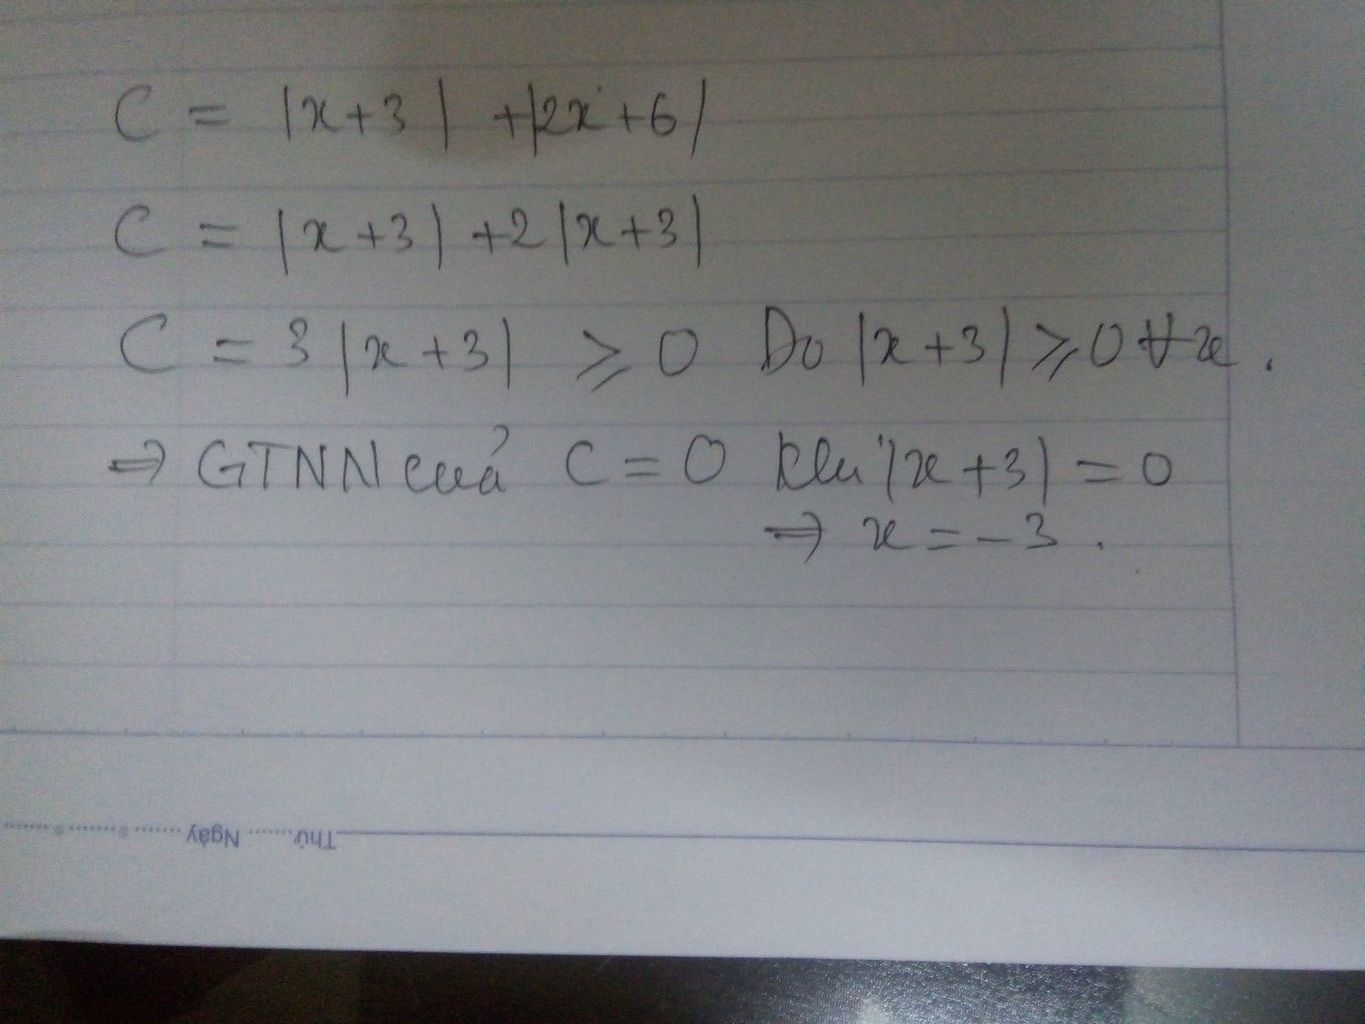 C = |x+3| + |2x+6|
C = |x+3| +2|x+3|
C = 3|x+3| ⩾ 0 Do |x+3| ⩾ 0 ∀x.
⇒ GTNN của C = 0 khi |x+3| = 0
⇒ x = -3.
Thứ....... Ngày